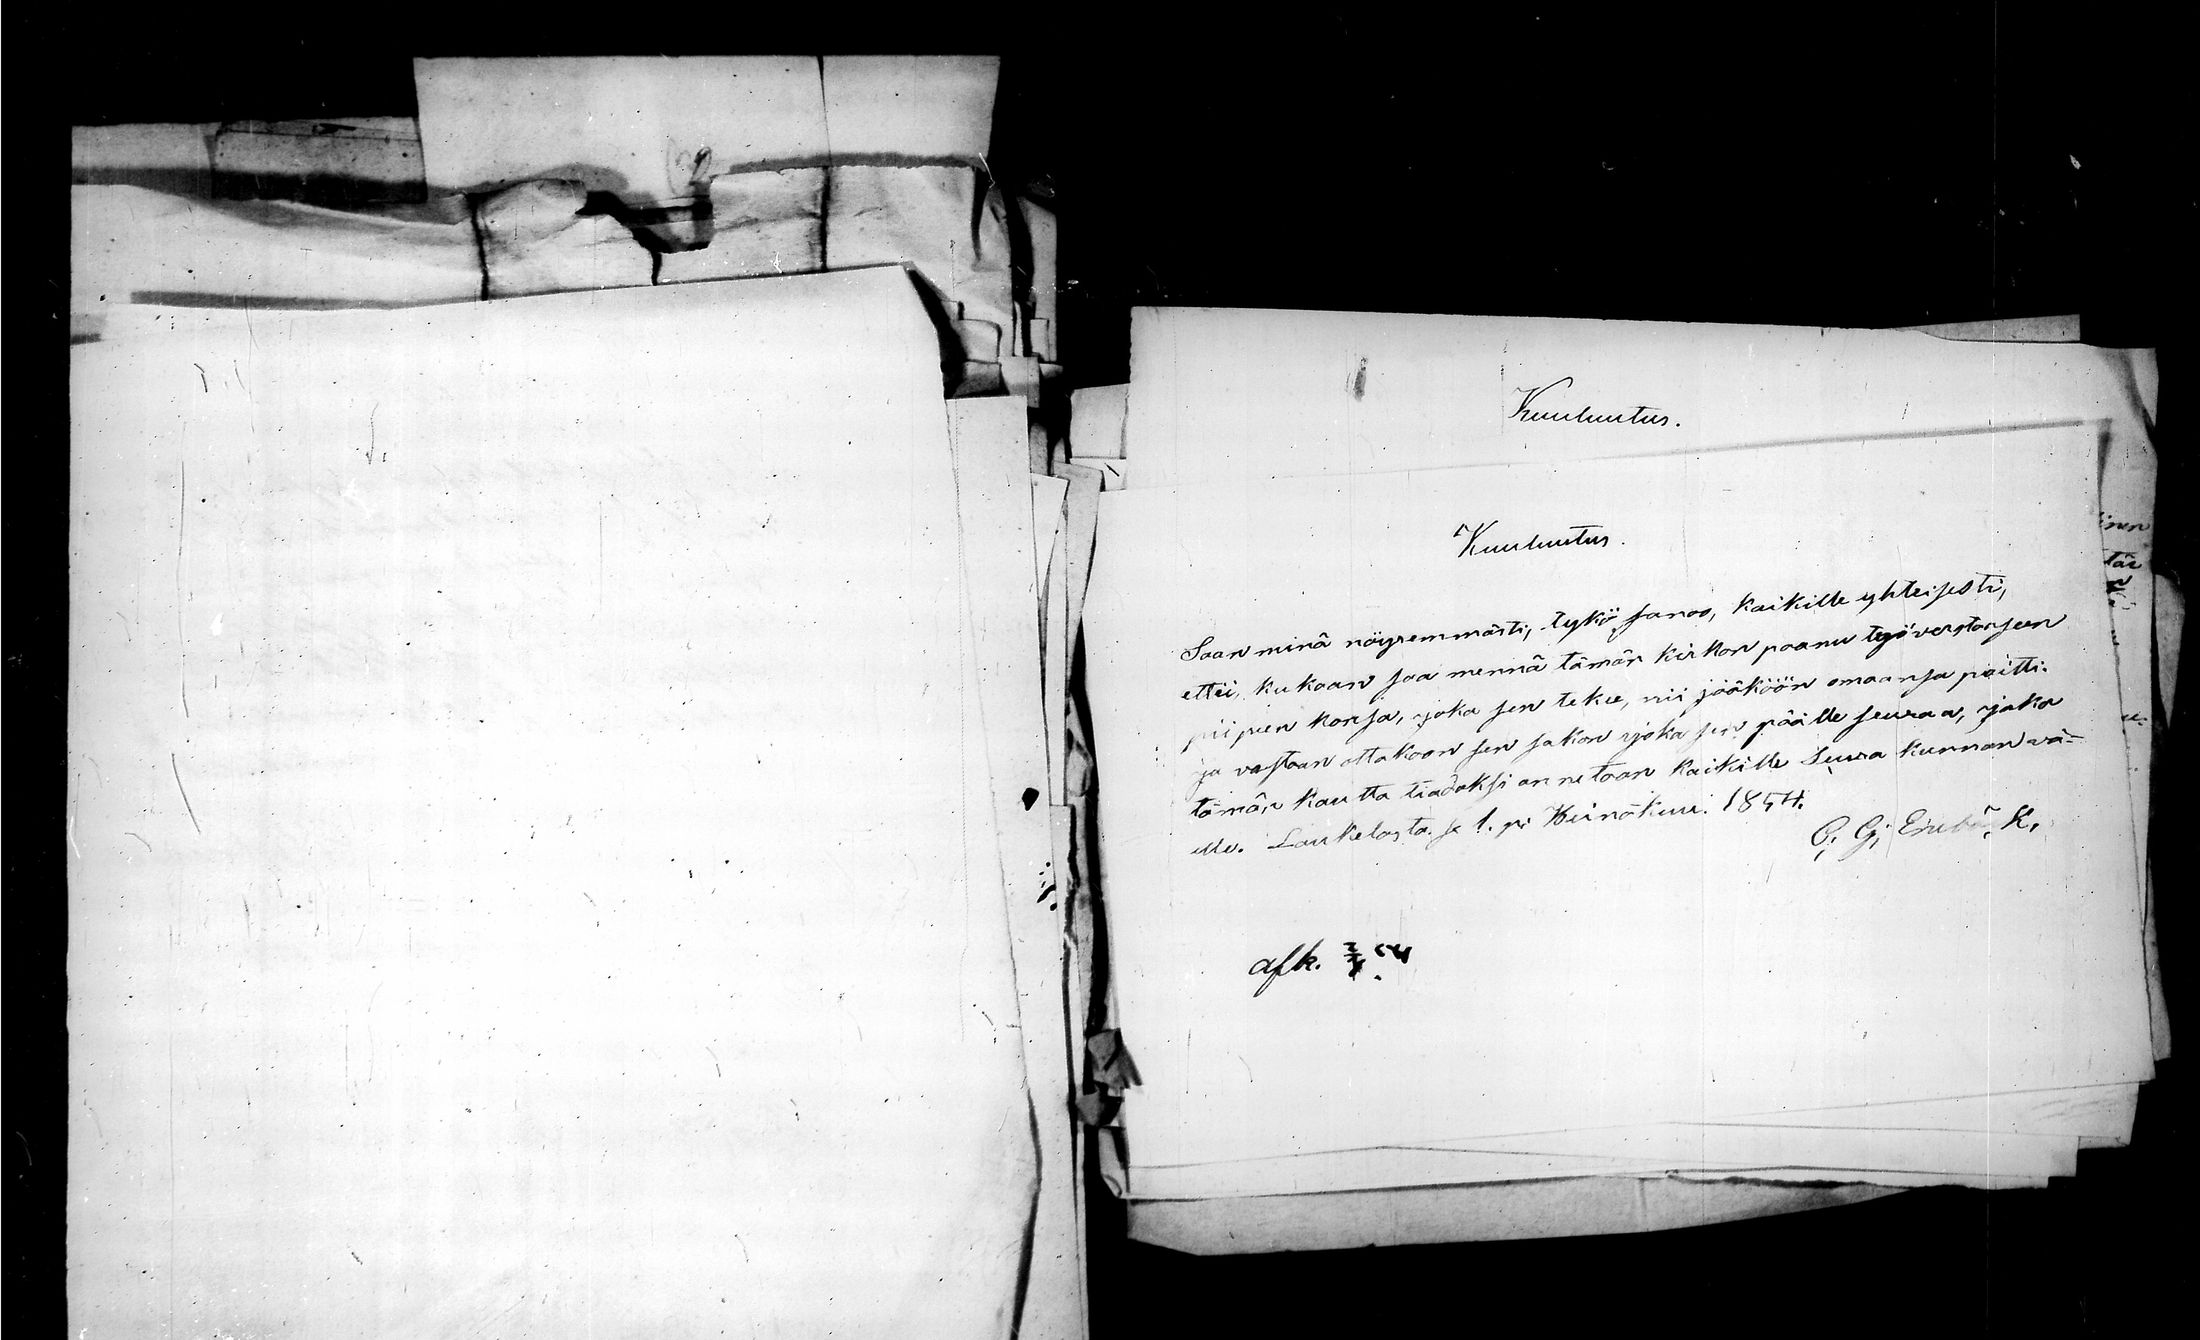 Kuuluutus.
Kuuluutus.
Saan minä nöyremmästi, tykö sanoo, kaikille yhteisesti,
ettei, kukaan saa mennä tämän kirkon paanu työverstaaseen
piipun kansa, joka sen tekee, nii jääköön omaansa paitti.
ja vastaan ottakoon sen sakon joka sen päälle seuraa, joka
tämän kautta tiadoksi annetaan kaikille Seura kunnan vä-
elle. Laukelasta se 1. pä Heinäkuu. 1854.
C. G. K.
afk. 2/7 54
inen
täi